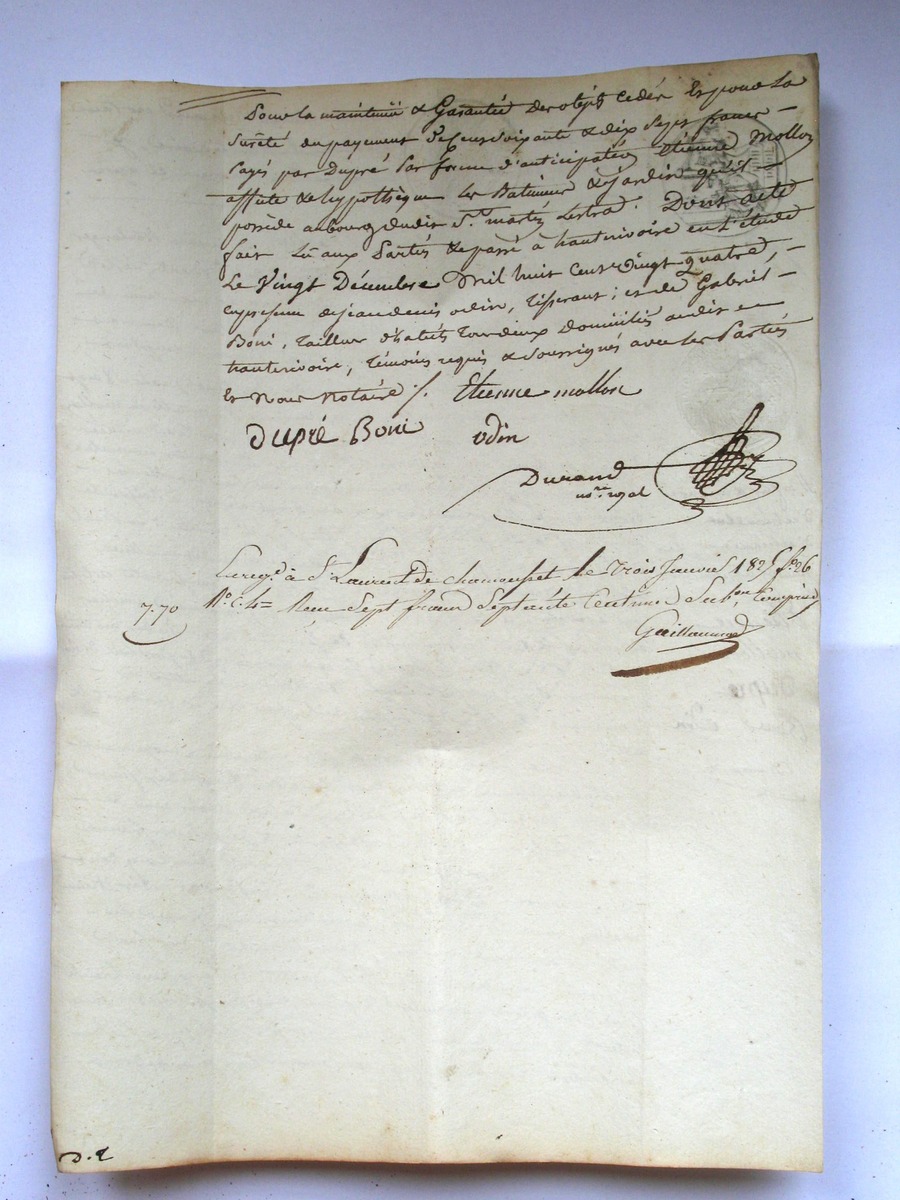 Pour la maintenüe & Garantie des objets Cedés Et pour la
sûreté du payement de Cent soixante & dix Sept francs
payés par Dupré par forme d'anticipation Etienne Mollon
affecte & hypothèque les Batimens & jardin qu'il
possède au bourg dudit St. martin Lestrad. Dont acte
fait Lû aux Parties & passé à hauterivoire en L'étude
Le Vingt Décembre Mil huit Cent vingt quatre,
en presence de jean denis odin, Tisserant; et de Gabriel
Boni, tailleur d'habits Tous deux Domiciliés audit
hauterivoire, Témoins requis & Soussignés avec les Parties
Et Nous Notaire /. Etienne mollon
Dupré Boni odin
Durand
nore. royal
Enreg.é à St. Laurent de chamousset le trois Janvier 1825 fo. 26
7.70 Ro. C. 4= Reçu Sept francs Septante Centimes Subon. Comprise
Guillaumot
D. E